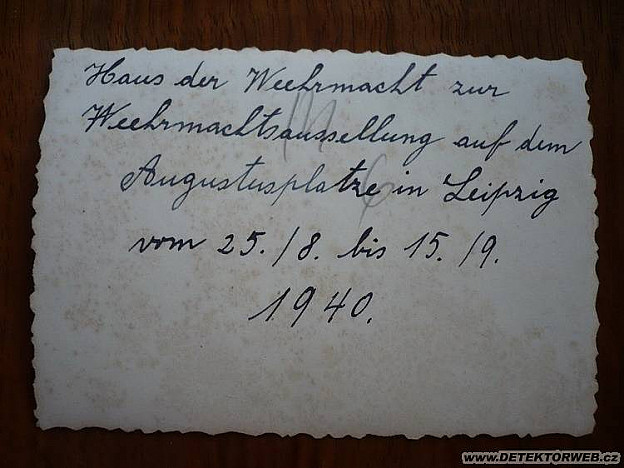 Haus der Weehrmacht zur
Weehrmachtsaussellung auf dem
Augustusplatze in Leipzig
vom 25./8. bis 15./9.
1940.
www.DETEKTORWEB.cz